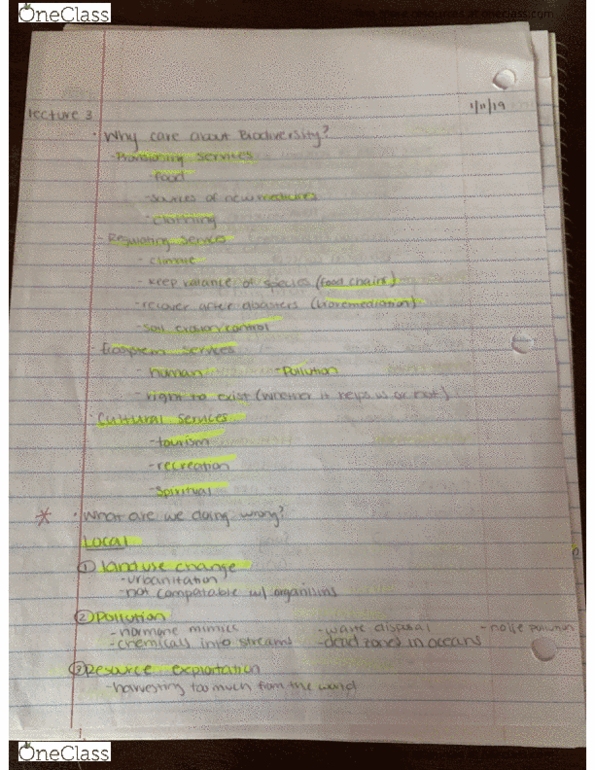 OneClass
lecture 3
1/11/19
· Why care about Biodiversity?
- Provisioning services
- food
- sources of new medicines
- clothing
- Regulating services
- climate
- keep balance of species (food chains)
- recover after disasters (bioremediation)
- soil erosion control
- Ecosystem services
- human - Pollution
- right to exist (whether it helps us or not)
· Cultural services
- tourism
- recreation
- spiritual
* · What are we doing wrong?
Local
① land use change
- urbanization
- not compatable w/ organisms
② Pollution
- hormone mimics - waste disposal - noise pollution
- chemicals into streams - dead zones in oceans
③ Resource exploitation
- harvesting too much from the world
OneClass